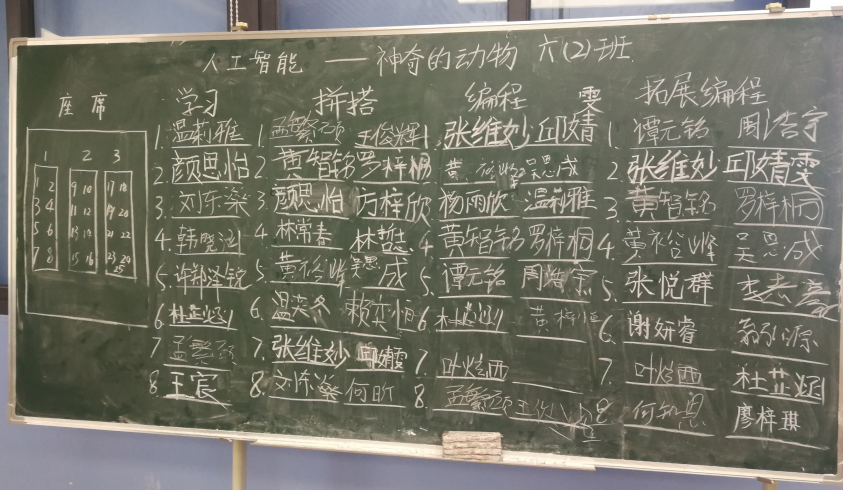 人工智能 —— 神奇的动物 六(2)班
座席
1 2 3
1 2 9 10 17 18
3 4 11 12 19 20
5 6 13 14 21 22
7 8 15 16 23 24
25
学习 拼搭 编程 雯 拓展编程
1. 温莉雅 1. 孟繁硕 王俊辉 1. 张维妙 邱婧 1. 谭元铭 周浩宇
2. 颜思怡 2 黄智铭 罗梓桐 2. 黄裕峰 吴思成 2 张维妙 邱婧雯
3. 刘东燊 3. 颜思怡 万梓欣 3. 杨雨欣 温莉雅 3. 黄智铭 罗梓桐
4. 韩 4. 林常春 林哲 4 黄智铭 罗梓桐 4. 黄裕峰 吴思成
5. 许 泽锐 5. 黄裕峰 吴思成 5. 谭元铭 周浩宇 5. 张悦群
6 杜芷涵 6. 温奕冬 赖奕恒 6. 杜芷涵 6. 谢妍睿
7 孟繁硕 7. 张维妙 邱婧雯 7. 叶灿西 7. 叶灿西 杜芷涵
8 王宸 8. 刘东燊 何昕 8 孟繁硕 王俊辉 8 何知恩 廖梓琪